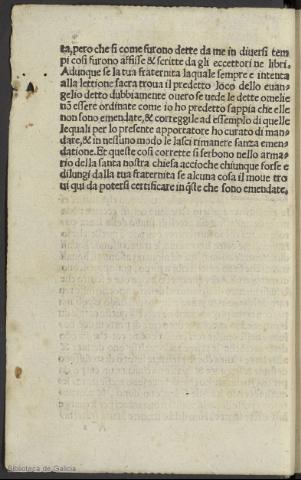 ta, pero che si come furono dette da me in diuersi tem
pi cosi furono affisse & scritte da gli eccettori ne libri.
Adunque se la tua fraternita laquale sempre e intenta
alla lettione sacra troua il predetto loco dello euan-
gelio detto dubbiamente ouero se uede le dette omelie
nō essere ordinate come io ho predetto sappia che elle
non sono emendate, & correggile ad essempio di quelle
lequali per lo presente apportatore ho curato di man-
dare, & in nessuno modo le lasci rimanere sanza emen-
datione. Et queste cosi corrette si serbono nello arma-
rio della santa nostra chiesa accioche chiunque forse e
dilungi dalla tua fraternita se alcuna cosa il moue tro
ui qui da potersi certificare in q̄lle che sono emendate.
Biblioteca de Galicia